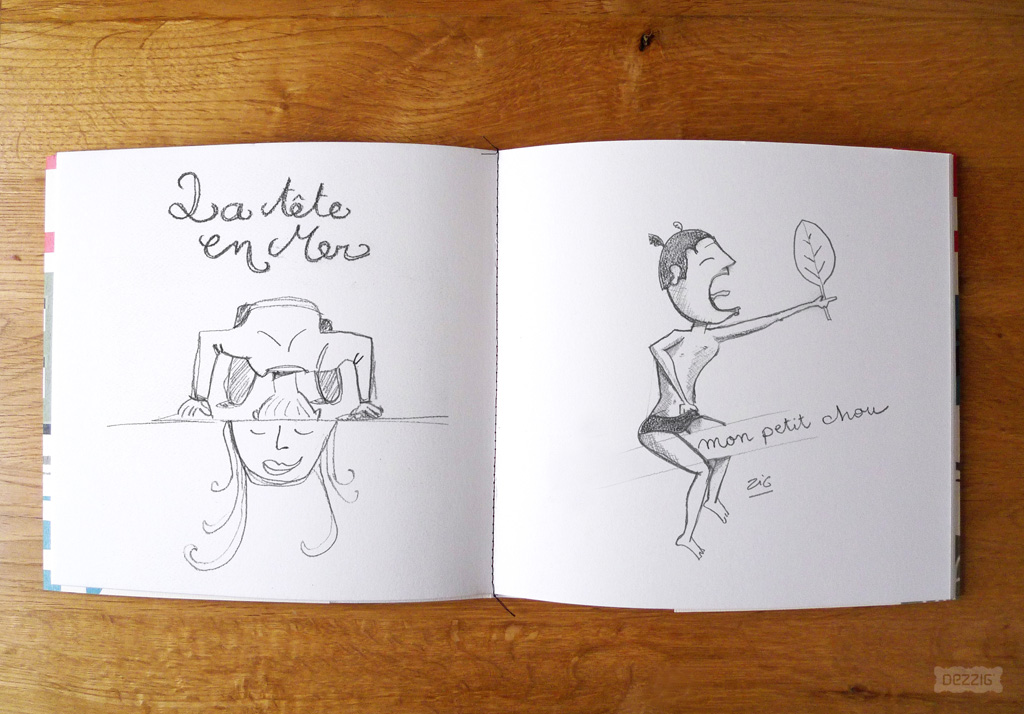 La tête
en Mer
mon petit chou
ZiG
DEZZIG